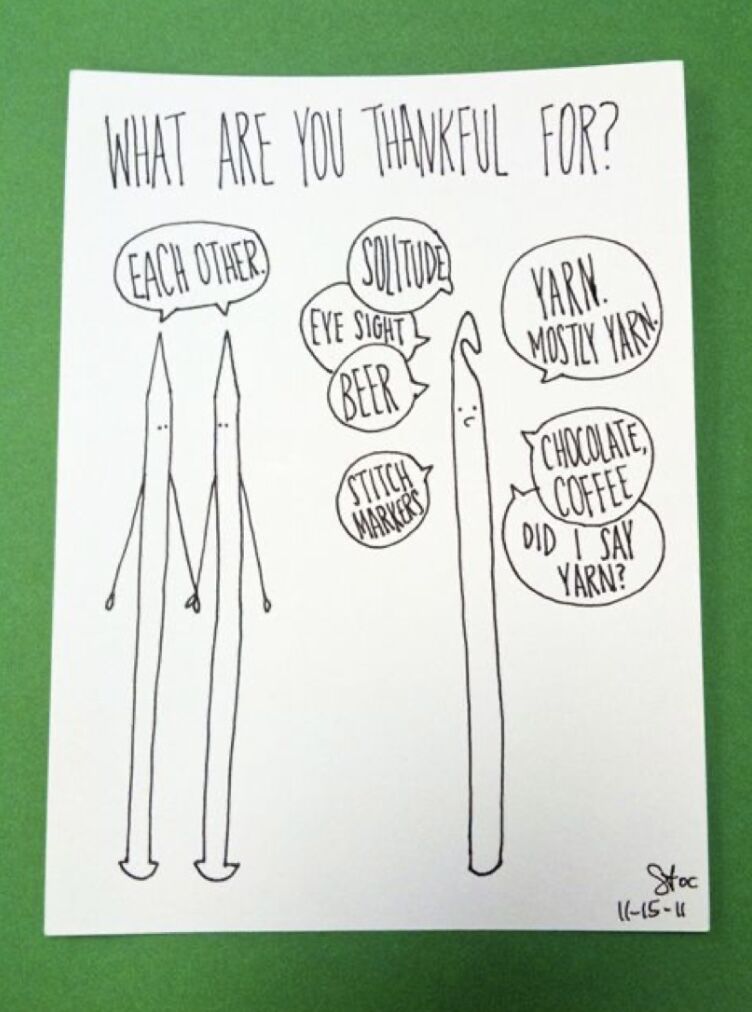 WHAT ARE YOU THANKFUL FOR?
EACH OTHER.
SOLITUDE
EYE SIGHT
BEER
STITCH
MARKERS
YARN.
MOSTLY YARN.
CHOCOLATE,
COFFEE
DID I SAY
YARN?
Stoc
11-15-11